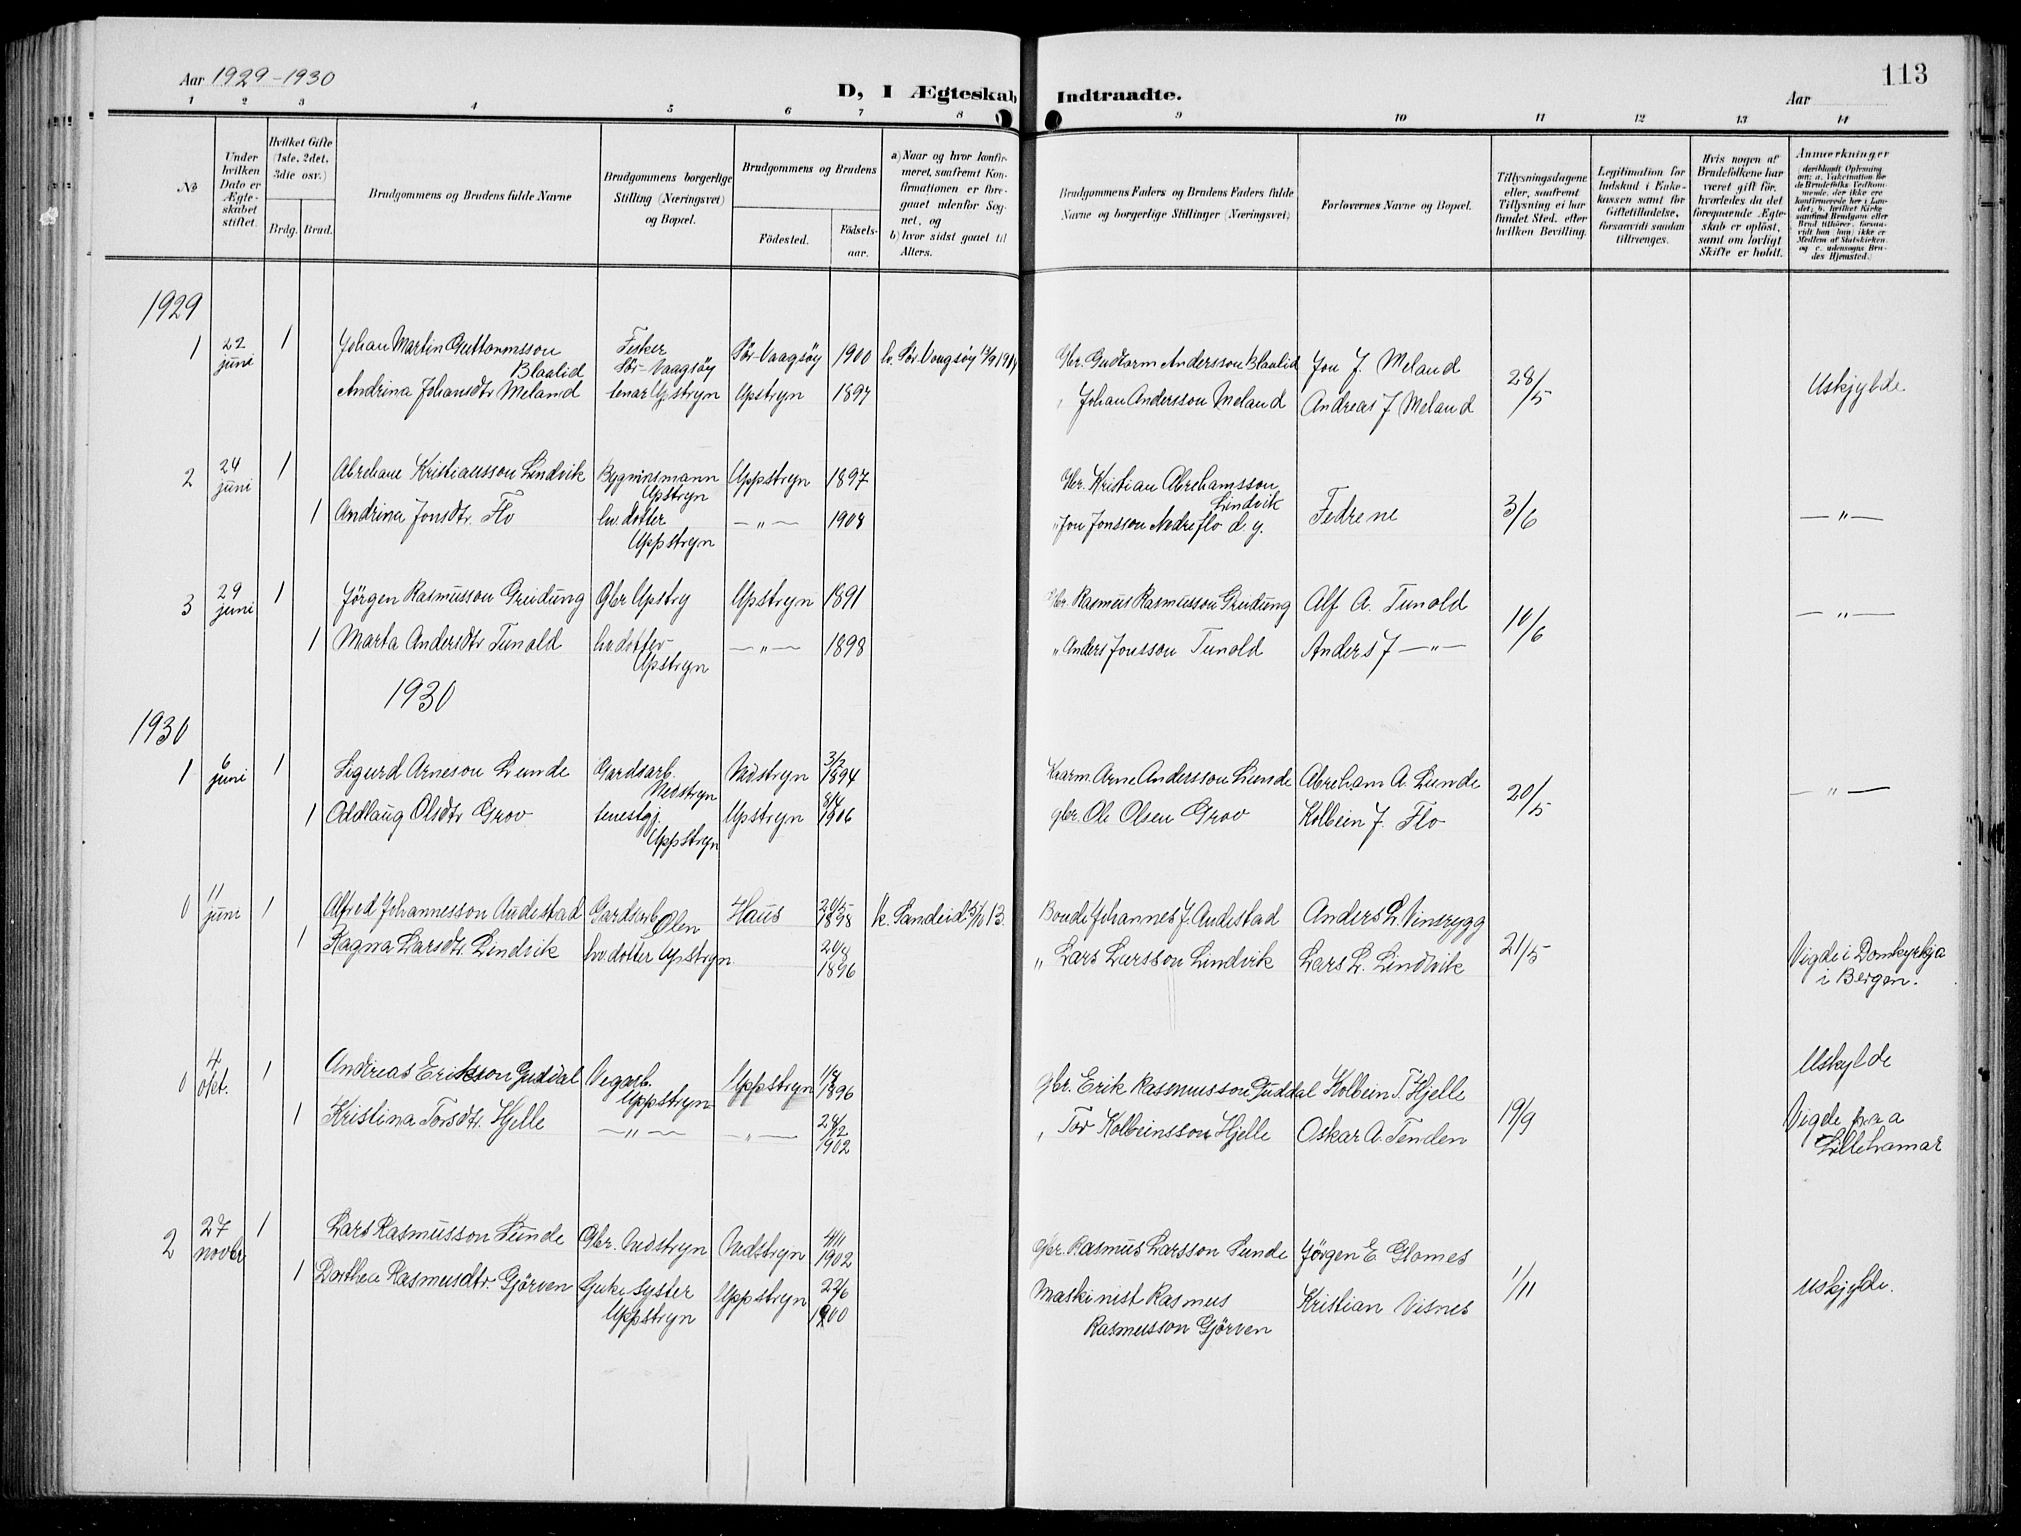 Aar 1929-1930
D, I Ægteskab Indtraadte.
113
Aar
1 2 3 4 5 6 7 8 9 10 11 12 13 14
No
Under hvilken Dato er Ægteskabet stiftet.
Hvilket Gifte (1ste, 2det, 3die osv.)
Brdg. Brud.
Brudgommens og Brudens fulde Navne
Brudgommens borgerlige Stilling (Næringsvei) og Bopæl.
Brudgommens og Brudens
Födested.
Födselsaar.
a) Naar og hvor konfirmeret, saafremt Konfirmationen er foregaaet udenför Sognet, og
b) hvor sidst gaaet til Alters.
Brudgommens Faders og Brudens Faders fulde Navne og borgerlige Stillinger (Næringsvei)
Forlovernes Navne og Bopæl.
Tillysningsdagene eller, saafremt Tillysning ei har fundet Sted, efter hvilken Bevilling.
Legitimation for Indskud i Enkekassen samt for Giftetilladelse, forsaavidt saadan tiltrænges.
Hvis nogen af Brudefolkene har været gift för, hvorledes da det foregaaende Ægteskab er oplöst, samt om lovligt Skifte er holdt.
Anmærkninger
(deriblandt Oplysning om: a. Vakcination for de Brudefolks Vedkommende, der ikke ere konfirmerede her i Landet; b. hvilket Kirkesamfund Brudgom eller Brud tilhörer, forsaavidt han (hun) ikke er Medlem af Statskirken, og c. udensogns Brudes Hjemsted.)
1929
1 22 juni 1 Johan Martin Guttormsson Blaalid Fisker Sör-Vaagsöy Sör-Vaagsöy 1900 k. Sör Vaagsöy Gbr. Gudtorm Andersson Blaalid Jon J. Meland 28/5 Uskjylde.
Andrina Johansdtr Meland tenar Upstryn Upstryn 1897 " Johan Andersson Meland Andreas J Meland
2 24 juni 1 Abreham Kristiansson Lindvik Bygningsmann Upstryn Uppstryn 1897 Gbr. Kristian Abrehamsson Lindvik Fedrene 3/6 — " —
1 Andrina Jonsdtr. Flo hv. dotter Uppstryn — " — 1908 " Jon Jonsson Nedreflo d. y.
3 29 juni 1 Jörgen Rasmusson Greidung Gbr Upstry Upstryn 1891 Gbr. Rasmus Rasmusson Greidung Alf A. Tunold 10/6 — " —
1 Marta Andersdtr Tunold hv. dotter Upstryn — " — 1898 " Anders Jonsson Tunold Anders J — " —
1930
1930
1 6 juni 1 Sigurd Arneson Lunde Gardsarb. Nedstryn Nedstryn 3/2 1894 Kvarm. Arne Andersson Lunde Abreham A. Lunde 20/5 — " —
1 Oddlaug Olsdtr Grov tenestgj. Uppstryn Upstryn 8/4 1906 gbr. Ole Olsen Grov Kolbein J. Flo
0 11 juni 1 Alfred Johannesson Audestad Gardsarb. Ølen Haus 20/5 1898 k. Sandeid 5/10 13. Bonde Johannes J. Audestad Anders L. Vinsrygg 21/5 Vigde i Domkyrkja i Bergen.
1 Ragna Larsdtr. Lindvik hv. dotter Upstryn 1896 " Lars Larsson Lindvik Lars L. Lindvik
0 4 okt. 1 Andreas Erikson Guddal Vegarb. Uppstryn Uppstryn 1896 gbr. Erik Rasmusson Guddal Kolbein T. Hjelle 19/9 Uskylde
1 Kristina Torsdtr. Hjelle — " — — " — 1902 " Tor Kolbeinsson Hjelle Oskar A. Tenden Vigde fraa Lillehamar
2 27 novbr 1 Lars Rasmusson Sunde Gbr. Nedstryn Nedstryn 4/11 1902 Gbr. Rasmus Larsson Sunde Jörgen E Glomes 1/11 Uskjylde.
1 Dorthea Rasmusdtr. Gjörven Sjukesyster Uppstryn Uppstryn 22/6 1900 Maskinist Rasmus Rasmusson Gjörven Kristian Visnes